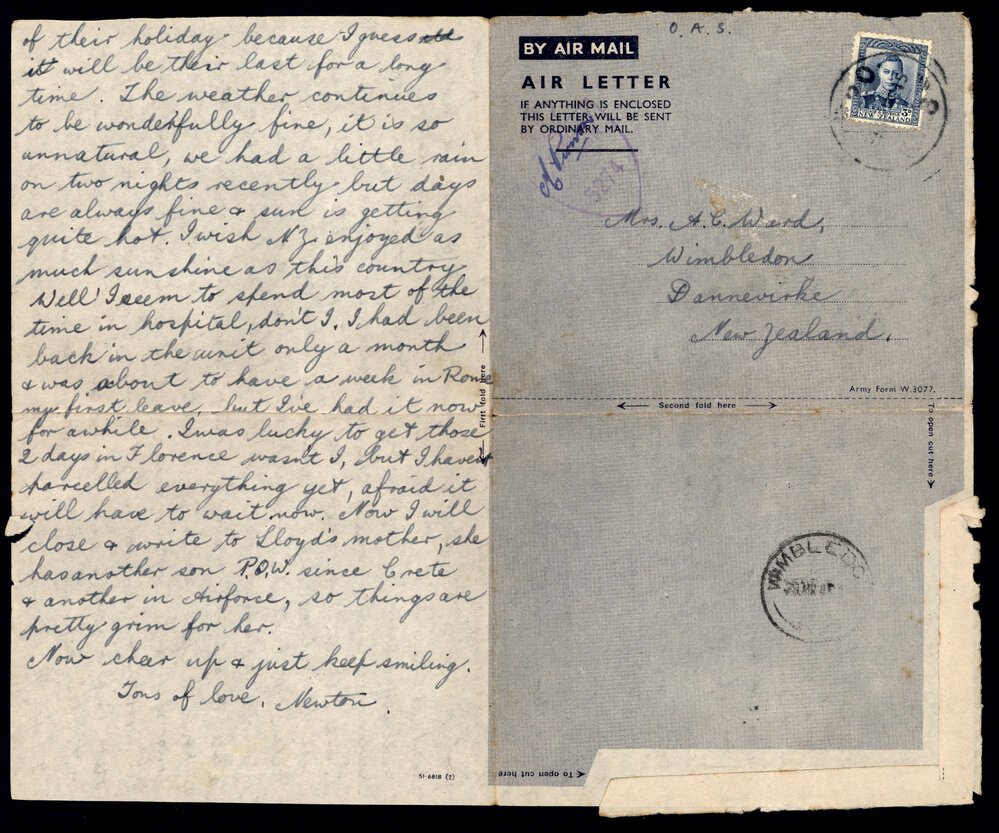 of their holiday because I guess
it will be their last for a long
time. The weather continues
to be wonderfully fine, it is so
unnatural, we had a little rain
on two nights recently but days
are always fine & sun is getting
quite hot. I wish N.Z. enjoyed as
much sunshine as this country
Well! I seem to spend most of the
time in hospital, don't I. I had been
back in the unit only a month
& was about to have a week in Rome
my first leave, but I've had it now
for awhile. I was lucky to get those
2 days in Florence wasn't I, but I haven't
parcelled everything yet, afraid it
will have to wait now. Now I will
close & write to Lloyd's mother, she
has another son P.O.W. since Crete
& another in Airforce, so things are
pretty grim for her.
Now cheer up & just keep smiling.
Tons of love, Newton.
51-6818 (2)
O. A. S.
BY AIR MAIL
AIR LETTER
IF ANYTHING IS ENCLOSED
THIS LETTER WILL BE SENT
BY ORDINARY MAIL.
5274
NEW ZEALAND
Mrs. A. C. Ward,
Wimbledon
Dannevirke
New Zealand.
Army Form W.3077.
First fold here
Second fold here
To open cut here
WIMBLEDO
To open cut here